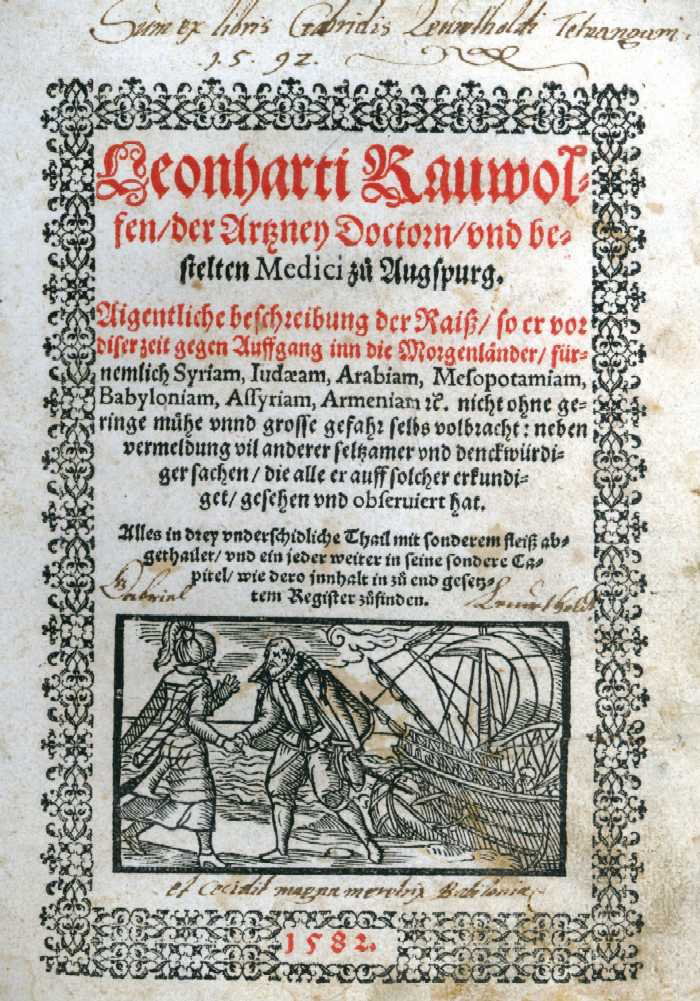 Sum ex libris Gabrielis
1.5.92.
Leonharti Rauwol-
fen/ der Artzney Doctorn/ vnd be-
stelten Medici zů Augspurg.
Aigentliche beschreibung der Raiß/ so er vor
diser zeit gegen Auffgang inn die Morgenländer/ für-
nemlich Syriam, Iudæam, Arabiam, Mesopotamiam,
Babyloniam, Assyriam, Armeniam ꝛc. nicht ohne ge-
ringe mühe vnnd grosse gefahr selbs volbracht: neben
vermeldung vil anderer seltzamer vnd denckwürdi-
ger sachen/ die alle er auff solcher erkundi-
get/ gesehen vnd obseruiert hat.
Alles in drey vnderschidliche Thail mit sonderem fleiß ab-
gethailet/ vnd ein jeder weiter in seine sondere Ca-
pitel/ wie dero innhalt in zů end gesetz-
tem Register zůfinden.
Gabriel
et cecidit magna meretrix Babilonia
1582.